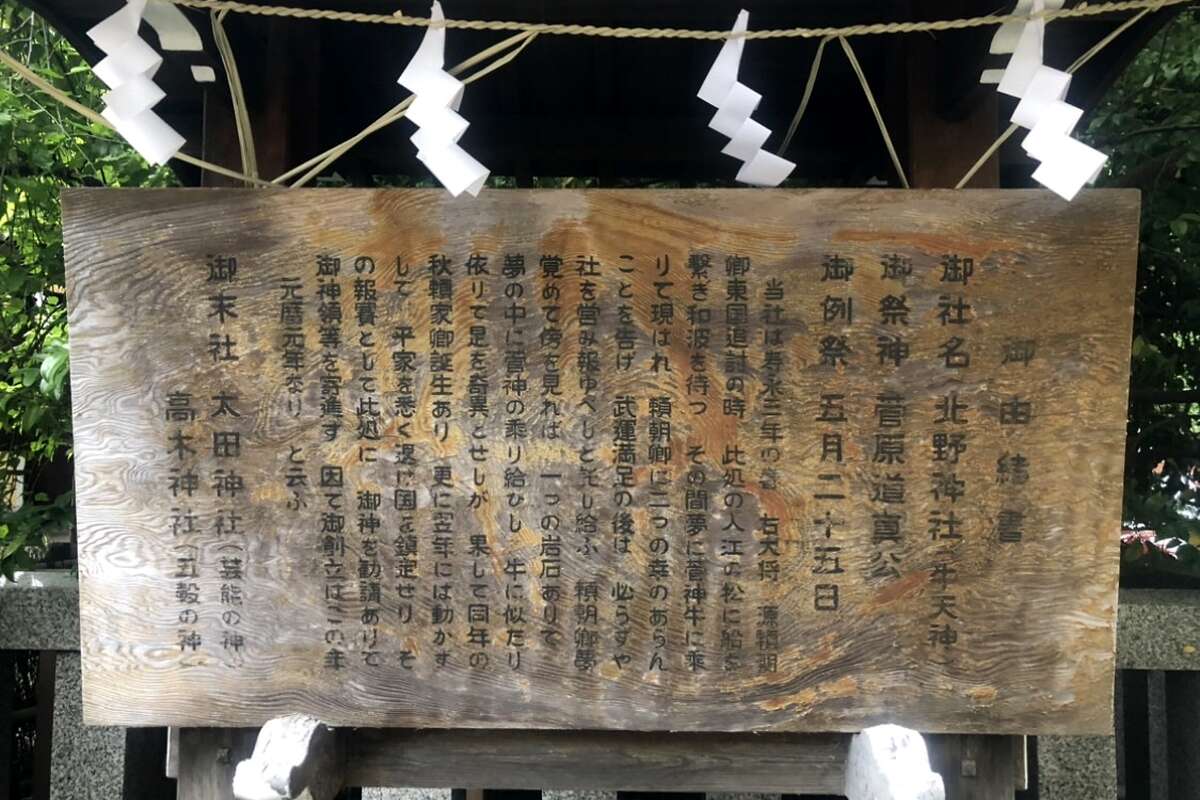 御由緒書
御社名 北野神社（牛天神）
御祭神 菅原道真公
御例祭 五月二十五日
当社は寿永三年の 右大将 源頼朝
卿東国追討の時 此処の入江の松に船を
繋ぎ和波を待つ その間夢に菅神牛に乗
りて現はれ 頼朝卿に二つの幸のあらん
ことを告げ 武運満足の後は 必らずや
社を営み報ゆべしと託し給ふ 頼朝卿夢
覚めて傍を見れば 一つの岩石ありて
夢の中に菅神の乗り給ひし 牛に似たり
依りて是を奇異とせしが 果して同年の
秋頼家卿誕生あり 更に翌年には動かず
して 平家を悉く 国を鎮定せり そ
の報賽として此処に 御神を勧請ありて
御神領等を寄進す 因て御創立はこの年
元暦元年なり と云ふ
御末社 太田神社（芸能の神）
高木神社（五穀の神）